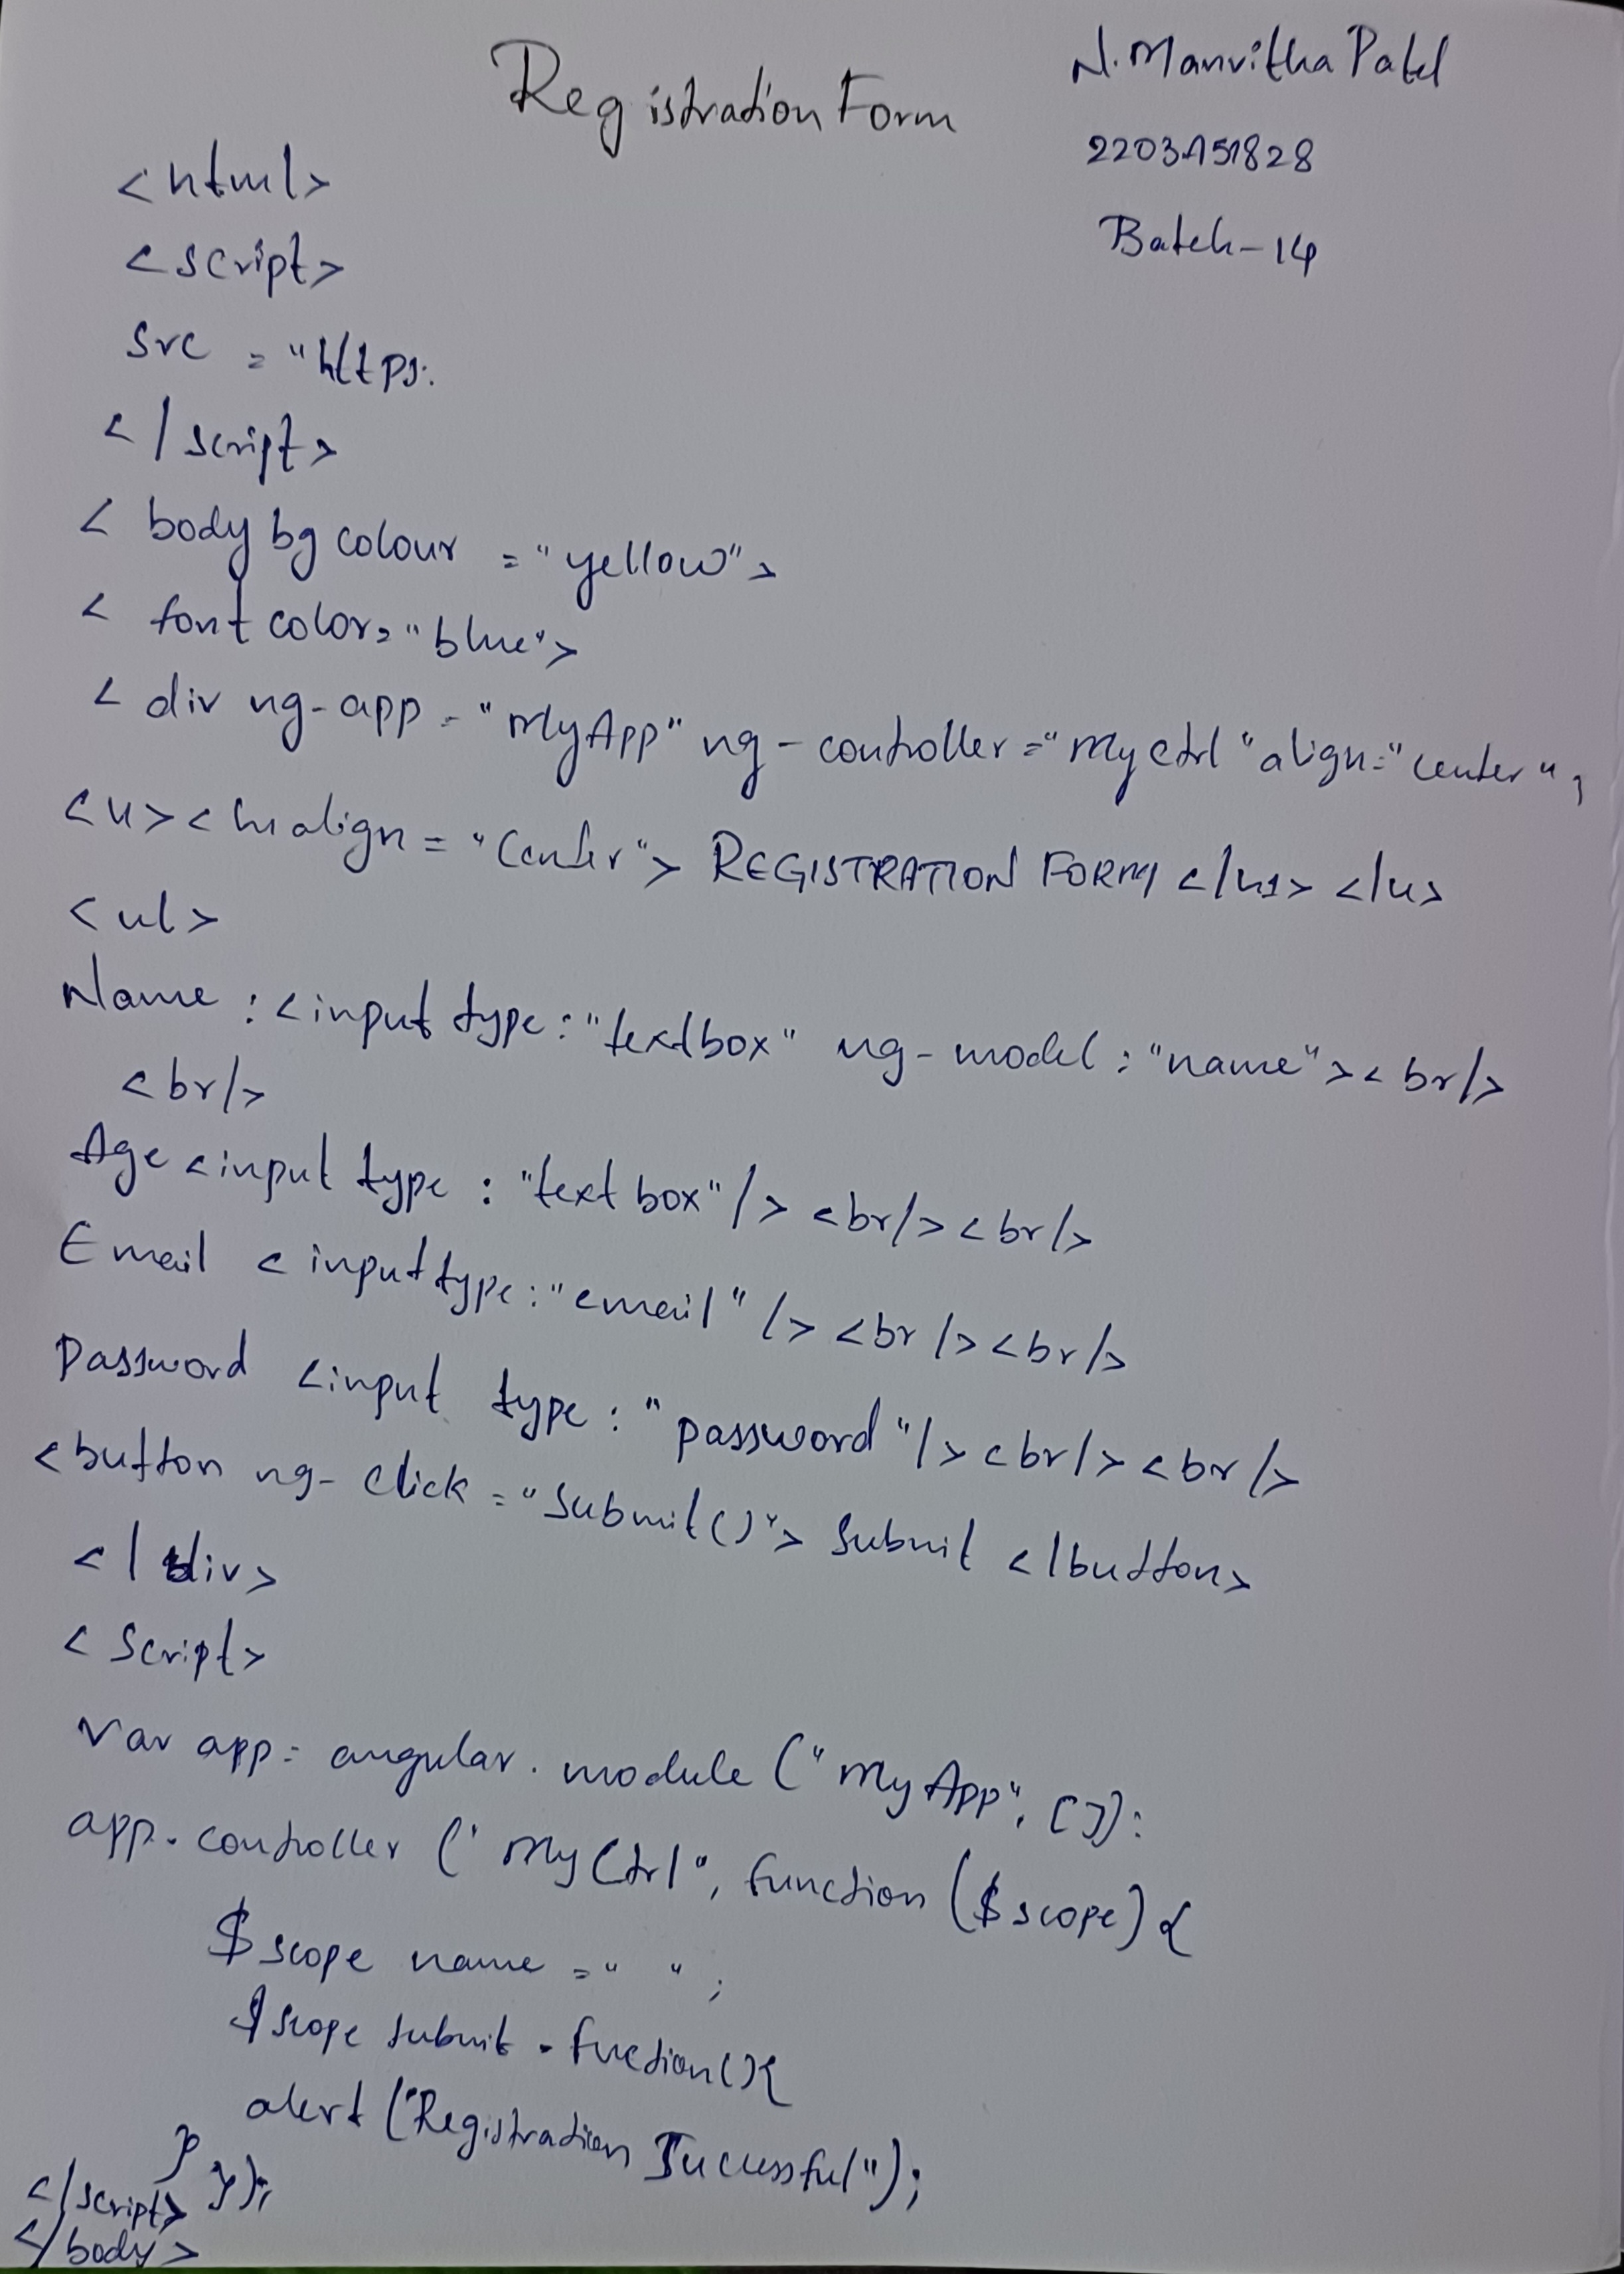 Registration Form
N. Manvitha Patel
2203A51828
Batch-14
<html>
<script>
src = "https:
</script>
< body bg colour = "yellow">
< font color="blue">
< div ng-app = "MyApp" ng-controller="MyCtrl" align="center";
<u><h1 align="Center"> REGISTRATION FORM </h1> </u>
<ul>
Name : <input type:"textbox" ng-model:"name"><br/>
<br/>
Age <input type : "text box"/> <br/><br/>
Email <input type:"email" /> <br/><br/>
Password <input type : "password"/><br/><br/>
<button ng-click="Submit()"> Submit </button>
</div>
<script>
var app = angular.module("MyApp", []):
app.controller("MyCtrl", function($scope){
$scope name = " ";
$scope submit = fuction(){
alert("Registration Successful");
}
});
</script>
</body>